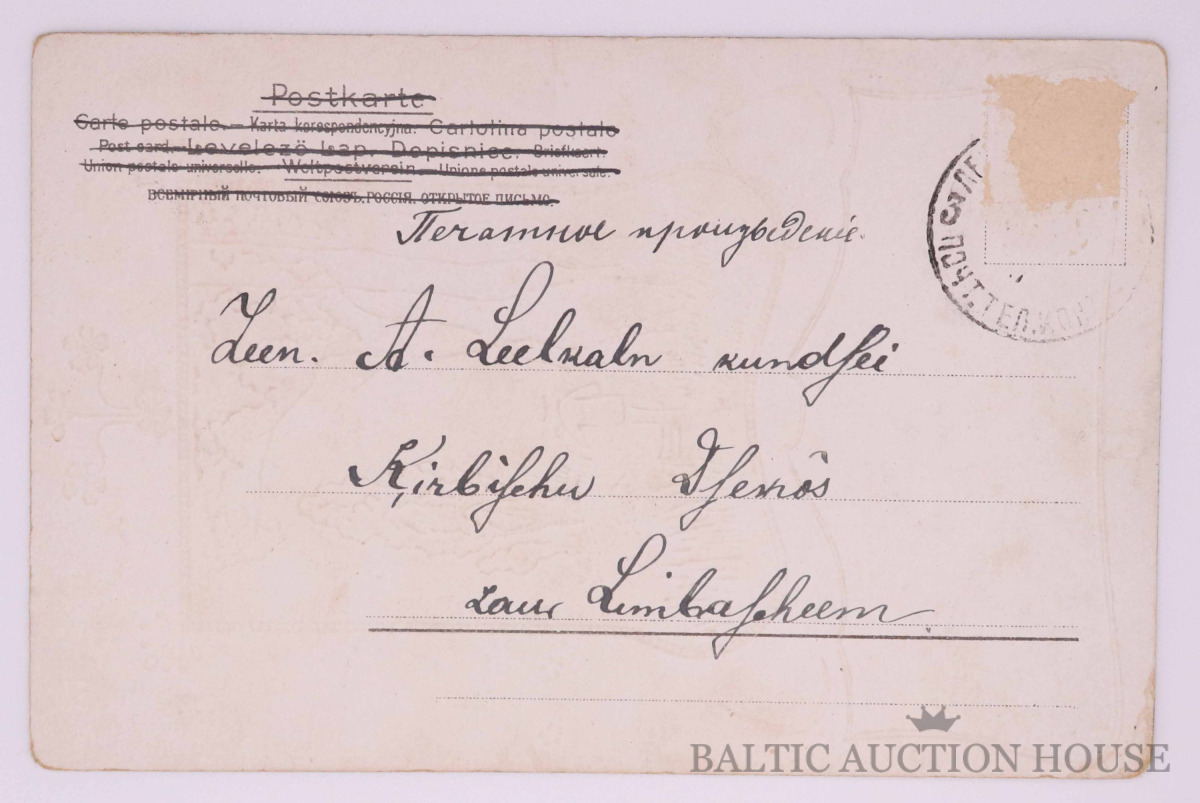 Postkarte
Carte postale. — Karta korespondencyjna. Cartolina postale
Post card. Levelező lap. Dopisnice. Briefkaart.
Union postale universelle. Weltpostverein. Unione postale universale.
ВСЕМІРНЫЙ ПОЧТОВЫЙ СОЮЗЪ. РОССІЯ. ОТКРЫТОЕ ПИСЬМО.
Печатное произведеніе.
Zeen. A. Leelkaln kundsei
Kirbischu Dsekôs
zaur Limbascheem
ПОЧТ. ТЕЛ. КОН
BALTIC AUCTION HOUSE